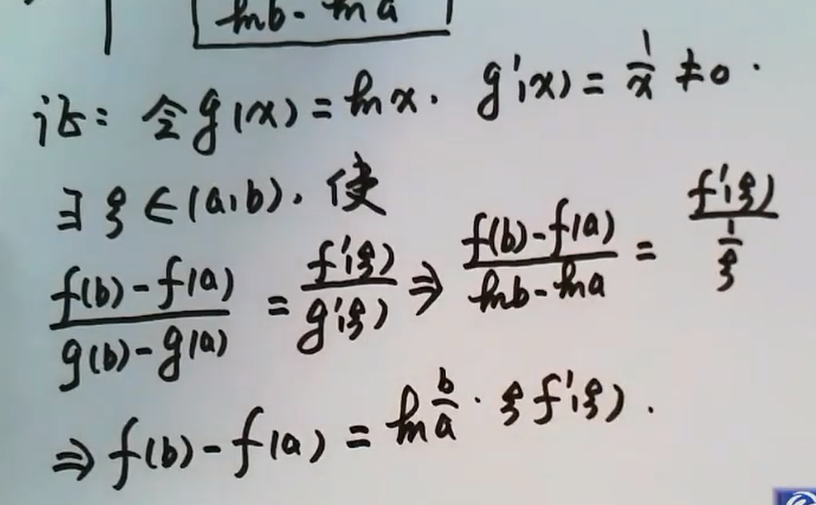 lnb - lna
证: 令g(x) = lnx. g'(x) = 1/x ≠ 0.
∃ ξ ∈ (a,b), 使
(f(b)-f(a))/(g(b)-g(a)) = f'(ξ)/g'(ξ) ⇒ (f(b)-f(a))/(lnb-lna) = f'(ξ)/(1/ξ)
⇒ f(b)-f(a) = ln b/a · ξf'(ξ).